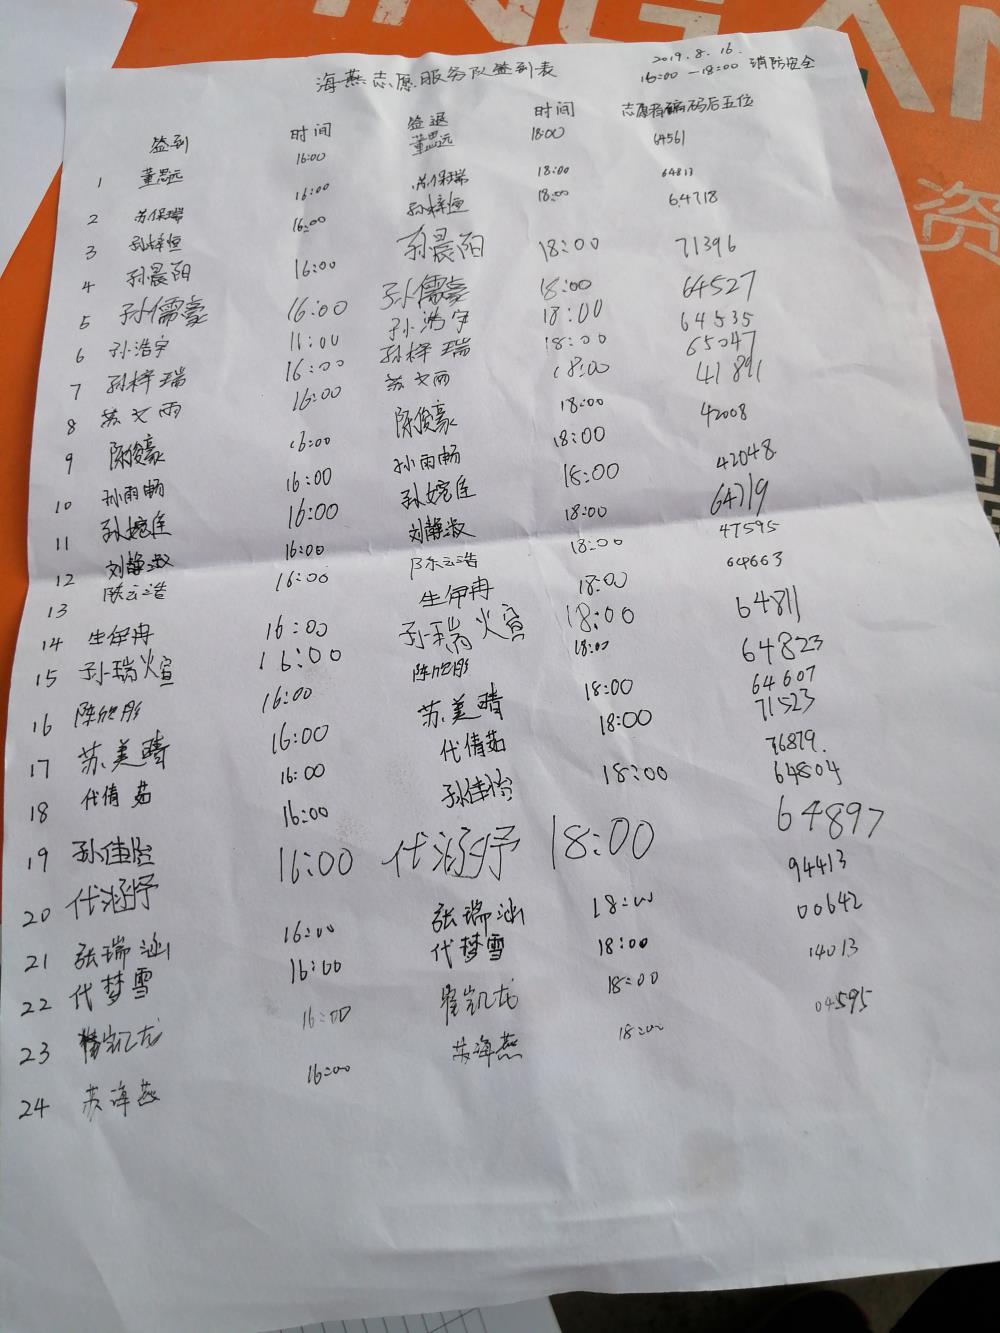 INGAN
资
海燕志愿服务队签到表
2019.8.16.
16:00—18:00 消防安全
签到 时间 签退 时间 志愿者编码后五位
1 董思远 16:00 董思远 18:00 64561
2 苏保瑞 16:00 苏保瑞 18:00 64813
3 孙梓恒 16:00 孙梓恒 18:00 64718
4 孙晨阳 16:00 孙晨阳 18:00 71396
5 孙儒豪 16:00 孙儒豪 18:00 64527
6 孙浩宇 16:00 孙浩宇 18:00 64535
7 孙梓瑞 16:00 孙梓瑞 18:00 65047
8 苏文雨 16:00 苏文雨 18:00 41891
9 陈俊豪 16:00 陈俊豪 18:00 42008
10 孙雨畅 16:00 孙雨畅 18:00 42048.
11 孙婉佳 16:00 孙婉佳 18:00 64719
12 刘静淑 16:00 刘静淑 18:00 47595
13 陈云浩 16:00 陈云浩 18:00 64663
14 生伊冉 16:00 生伊冉 18:00 64811
15 孙瑞煊 16:00 孙瑞煊 18:00 64823
16 陈欣彤 16:00 陈欣彤 18:00 64607
17 苏美晴 16:00 苏美晴 18:00 71523
18 代倩茹 16:00 代倩茹 18:00 76879.
19 孙佳怡 16:00 孙佳怡 18:00 64804
20 代涵妤 16:00 代涵妤 18:00 64897
21 张瑞汕 16:00 张瑞汕 18:00 94413
22 代梦雪 16:00 代梦雪 18:00 00642
23 崔凯龙 16:00 崔凯龙 18:00 14013
24 苏海燕 16:00 苏海燕 18:00 04595